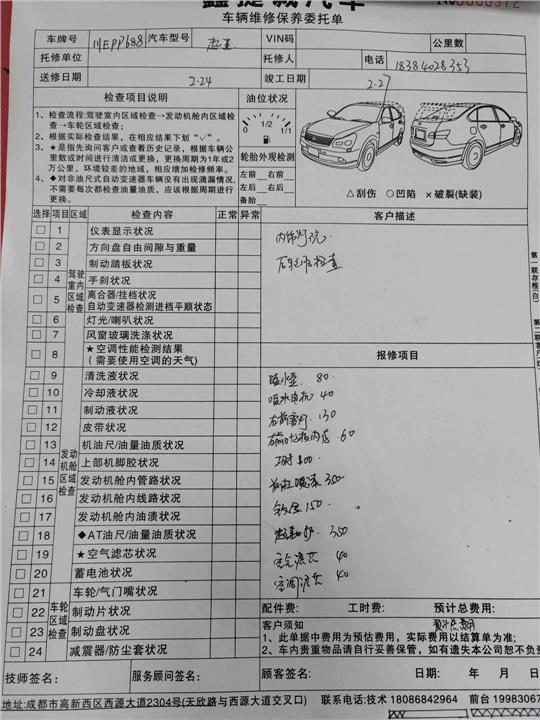 鑫捷诚汽车
车辆维修保养委托单
车牌号 川EPP688 汽车型号 起亚 VIN码 公里数
托修单位 托修人 电话 18384028353
送修日期 2.24 竣工日期 2.27
检查项目说明 油位状况
1、检查流程:驾驶室内区域检查→发动机舱内区域检查→车轮区域检查;
2、根据实际检查结果,在相应结果下划“√”。
3、★是指先询问客户或查看历史记录,根据车辆公里数或时间进行清洁或更换,更换周期为1年或2万公里,环境较差的地域,相应增加检修频率。
4、◆对非油尺式自动变速器车辆没有出现滴漏情况,不需要每次都检查油量油质,应该根据周期进行更换。
0 1/2 1/1
轮胎外观检测
左前 右前
左后 右后
备胎
△刮伤 ○凹陷 ×破裂(缺装)
选择 项目 区域 检查内容 正常 异常 客户描述
驾驶室内区域检查
1 仪表显示状况
2 方向盘自由间隙与重量
3 制动踏板状况
4 手刹状况
5 离合器/挂档状况
自动变速器检测进档平顺状态
6 灯光/喇叭状况
7 风窗玻璃洗涤状况
8 ★空调性能检测结果
(需要使用空调的天气)
报修项目
发动机舱区域检查
9 清洗液状况
10 冷却液状况
11 制动液状况
12 皮带状况
13 机油尺/油量油质状况
14 上部机脚胶状况
15 发动机舱内管路状况
16 发动机舱内线路状况
17 发动机舱内油渍状况
18 ◆AT油尺/油量油质状况
19 ★空气滤芯状况
20 蓄电池状况
喷水壶 80
喷水电机 40
右前雾灯 130
右前叶子板内衬 60
工时 300
钣金 150
350
空气滤芯 40
空调滤芯 40
车轮区域检查
21 车轮/气门嘴状况
22 制动片状况
23 制动盘状况
24 减震器/防尘套状况
配件费: 工时费: 预计总费用:
客户须知
1、此单据中费用为预估费用,实际费用以结算单为准;
2、车内贵重物品请自行妥善保管,如有遗失本公司恕不负
技师签名: 服务顾问签名: 顾客签名: 日期: 年 月 日
地址:成都市高新西区西源大道2304号(天欣路与西源大道交叉口) 联系电话:技术 18086842964 前台 19983067
第一联存根(白)